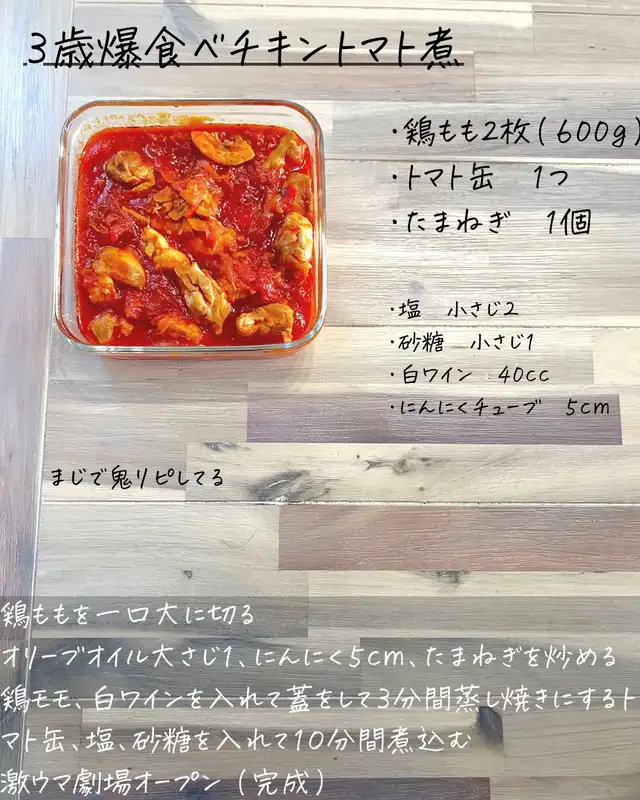 3歳爆食べチキントマト煮
・鶏もも2枚(600g)
・トマト缶　1つ
・たまねぎ　1個
・塩　小さじ2
・砂糖　小さじ1
・白ワイン　40cc
・にんにくチューブ　5cm
まじで鬼リピしてる
鶏ももを一口大に切る
オリーブオイル大さじ1、にんにく5cm、たまねぎを炒める
鶏モモ、白ワインを入れて蓋をして3分間蒸し焼きにするト
マト缶、塩、砂糖を入れて10分間煮込む
激ウマ劇場オープン(完成)